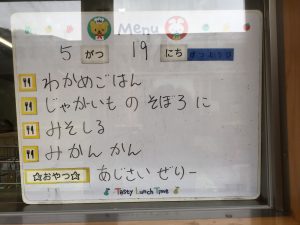 Menu
5 がつ 19 にち げつようび
わかめごはん
じゃがいも の そぼろ に
みそしる
みかん かん
☆おやつ☆ あじさい ぜりー
Tasty Lunch Time